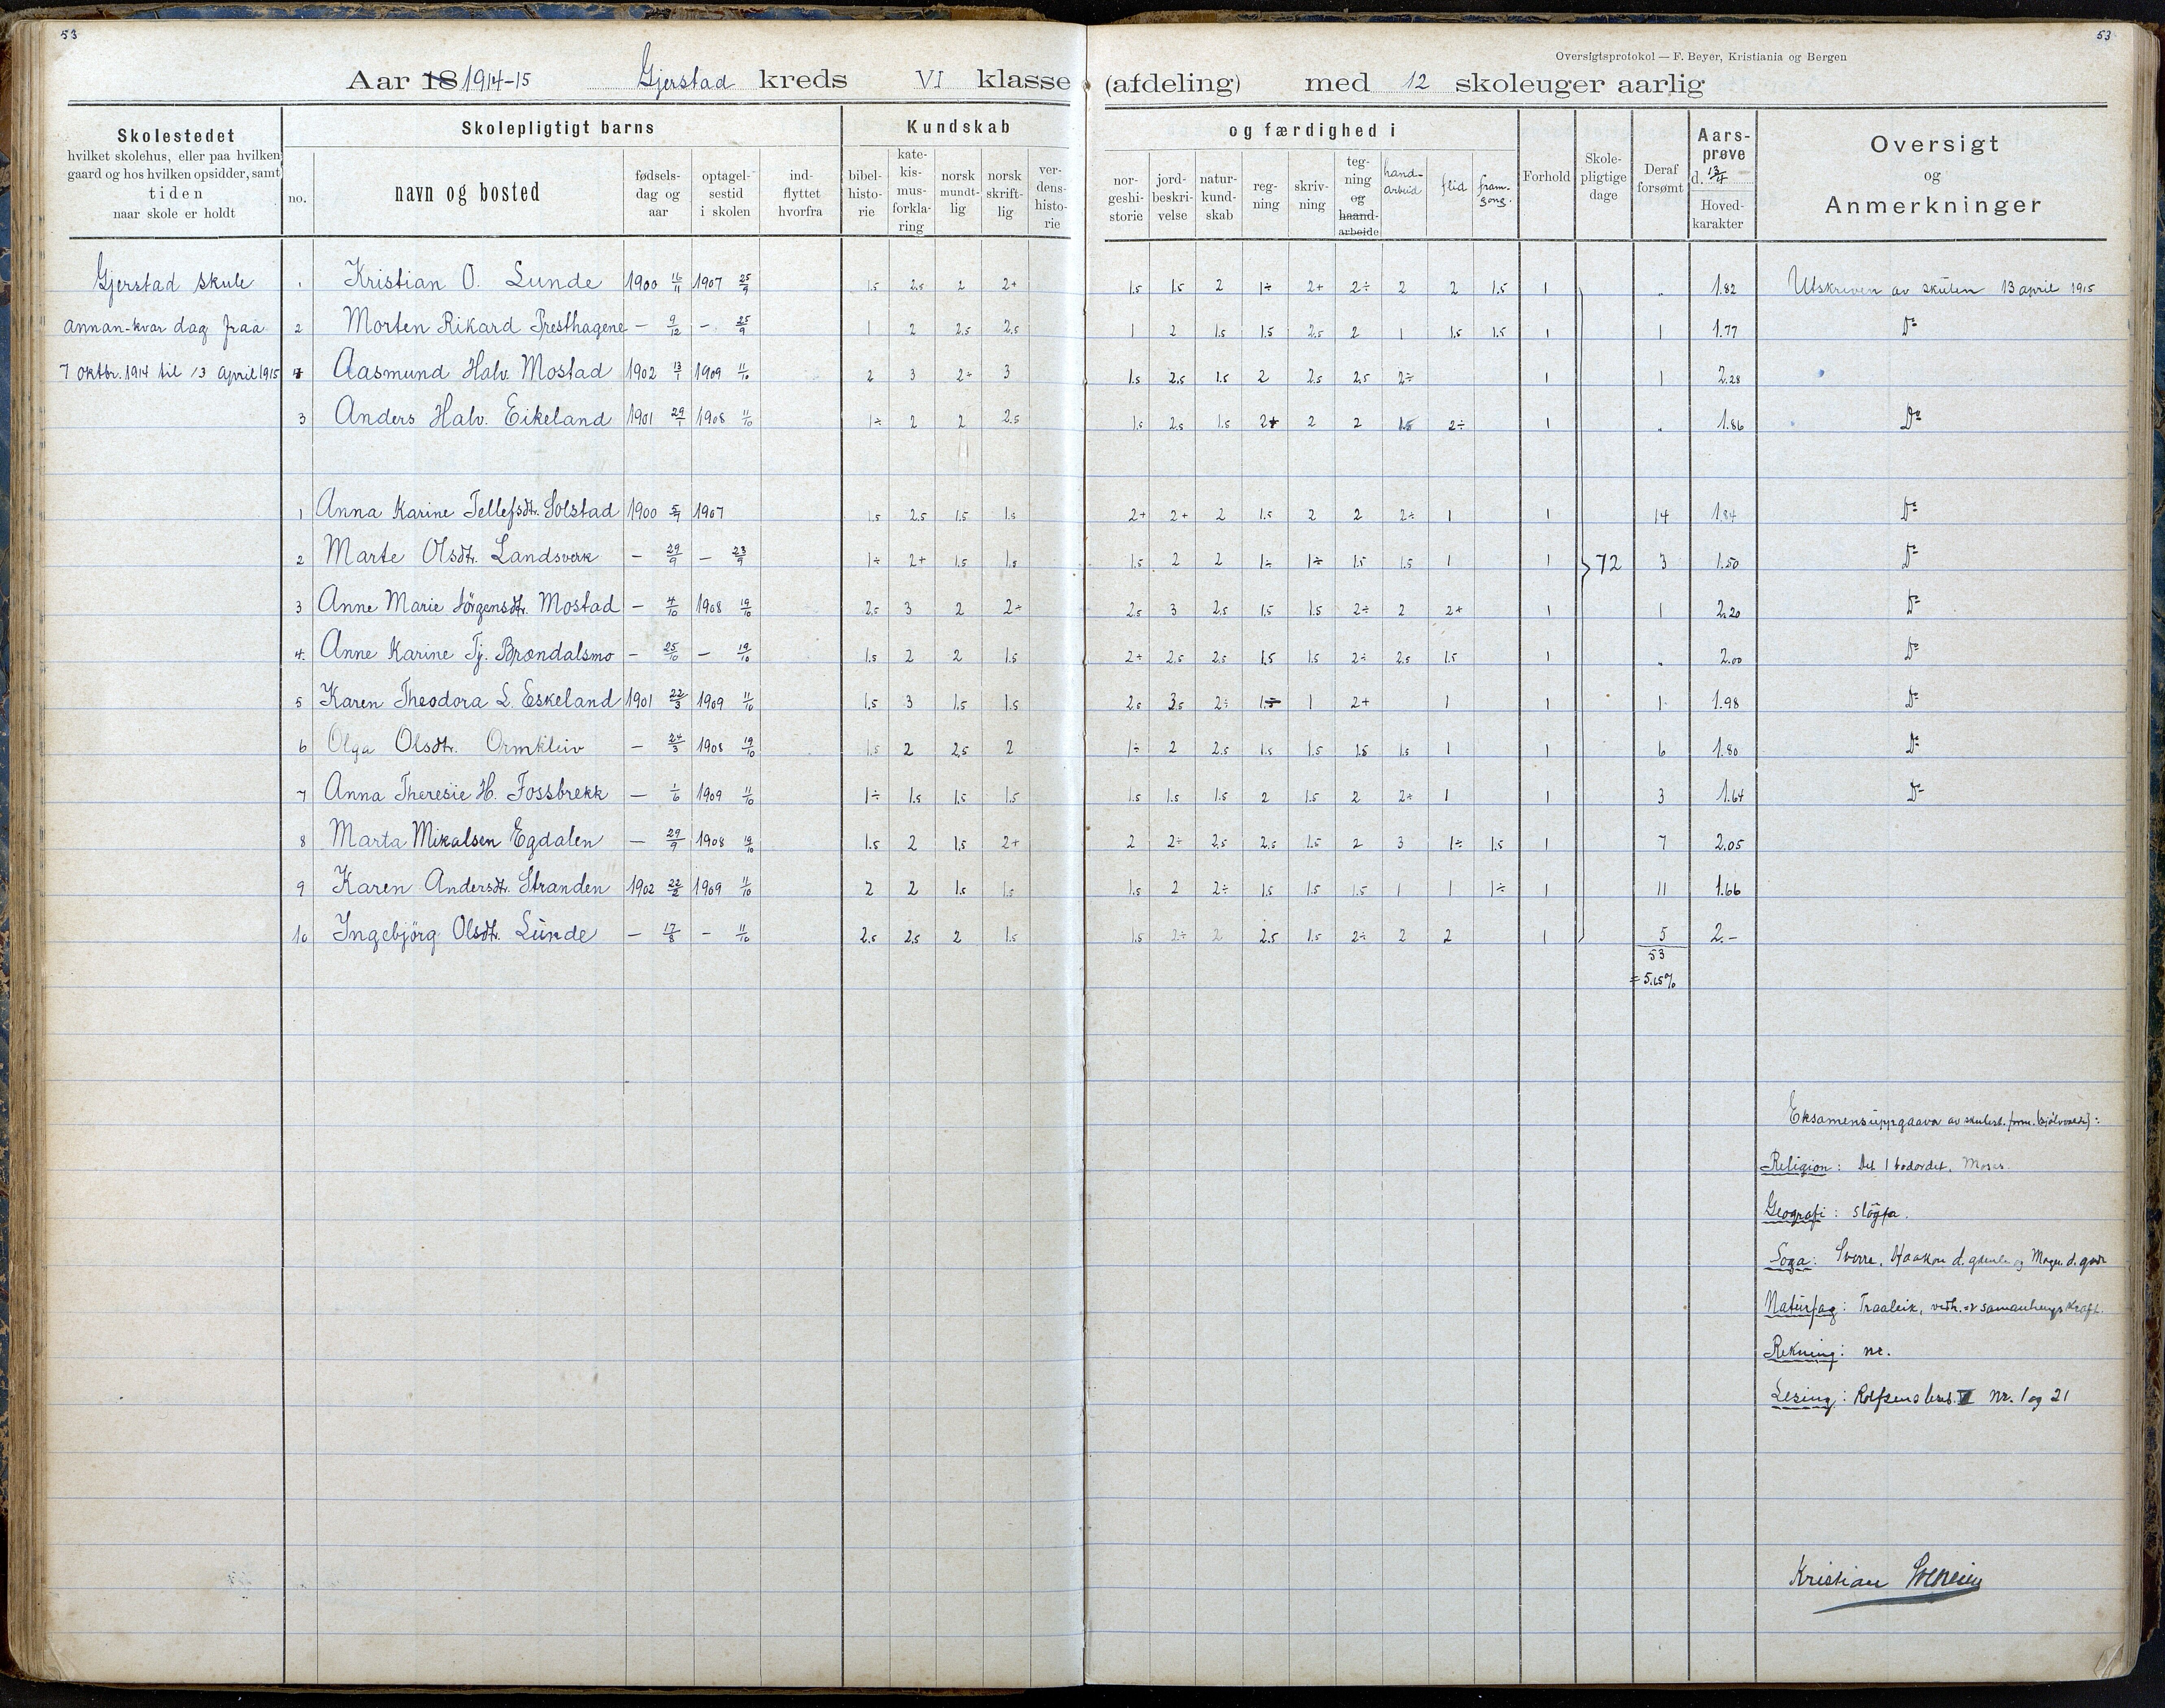 53
53
Oversigtsprotokol — F. Beyer, Kristiania og Bergen
Aar 18 1914-15 Gjerstad kreds VI klasse (afdeling) med 12 skoleuger aarlig
Skolestedet
hvilket skolehus, eller paa hvilken
gaard og hos hvilken opsidder, samt
tiden
naar skole er holdt
Skolepligtigt barns
no.
navn og bosted
fødsels-
dag og
aar
optagel-
sestid
i skolen
ind-
flyttet
hvorfra
Kundskab
bibel-
histo-
rie
kate-
kis-
mus-
forkla-
ring
norsk
mundt-
lig
norsk
skrift-
lig
ver-
dens-
histo-
rie
og færdighed i
nor-
geshi-
storie
jord-
beskri-
velse
natur-
kund-
skab
reg-
ning
skriv-
ning
teg-
ning
og
haand-
arbeide
hand-
arbeid
flid
fram-
gong.
Forhold
Skole-
pligtige
dage
Deraf
forsømt
Aars-
prøve
d. 13/4
Hoved-
karakter
Oversigt
og
Anmerkninger
Gjerstad skule
annan-kvar dag fraa
7 oktbr. 1914 til 13 april 1915
1 Kristian O. Lunde 1900 16/11 1907 25/9 1.5 2.5 2 2+ 1.5 1.5 2 1÷ 2+ 2÷ 2 2 1.5 1 „ 1.82 Utskriven av skulen 13 april 1915
2 Morten Rikard Presthagene — 9/12 — 25/9 1 2 2.5 2.5 1 2 1.5 1.5 2.5 2 1 1.5 1.5 1 1 1.77 Do
Aasmund Halv. Mostad 1902 13/1 1909 11/10 2 3 2÷ 3 1.5 2.5 1.5 2 2.5 2.5 2÷ 1 1 2.28
3 Anders Halv. Eikeland 1901 29/1 1908 11/10 1÷ 2 2 2.5 1.5 2.5 1.5 2+ 2 2 1.5 2÷ 1 „ 1.86 Do
1 Anna Karine Tellefsdtr. Solstad 1900 5/9 1907 1.5 2.5 1.5 1.5 2+ 2+ 2 1.5 2 2 2÷ 1 1 14 1.84 Do
2 Marte Olsdtr. Landsverk — 29/9 — 23/9 1÷ 2+ 1.5 1.5 1.5 2 2 1÷ 1÷ 1.5 1.5 1 1 72 3 1.50 Do
3 Anne Marie Jörgensdtr. Mostad — 4/10 1908 19/10 2.5 3 2 2÷ 2.5 3 2.5 1.5 1.5 2÷ 2 2+ 1 1 2.20 Do
4. Anne Karine Tj. Brændalsmo — 25/10 — 19/10 1.5 2 2 1.5 2+ 2.5 2.5 1.5 1.5 2÷ 2.5 1.5 1 „ 2.00 Do
5 Karen Theodora L. Eskeland 1901 22/3 1909 11/10 1.5 3 1.5 1.5 2.5 3.5 2÷ 1 2+ 1 1 1 1.98 Do
6 Olga Olsdtr. Ormkleiv — 24/3 1908 19/10 1.5 2 2.5 2 1÷ 2 2.5 1.5 1.5 1.5 1.5 1 1 6 1.80 Do
7 Anna Theresie H. Fossbrekk — 1/6 1909 11/10 1÷ 1.5 1.5 1.5 1.5 1.5 1.5 2 1.5 2 2+ 1 1 3 1.64 Do
8 Marta Mikalsen Egdalen — 29/9 1908 19/10 1.5 2 1.5 2+ 2 2÷ 2.5 2.5 1.5 2 3 1÷ 1.5 1 7 2.05
9 Karen Andersdtr. Stranden 1902 22/2 1909 11/10 2 2 1.5 1.5 1.5 2 2÷ 1.5 1.5 1.5 1 1 1÷ 1 11 1.66
10 Ingebjörg Olsdtr. Lunde — 17/8 — 11/10 2.5 2.5 2 1.5 1.5 2÷ 2 2.5 1.5 2÷ 2 2 1 5 2.—
53
= 5.15%
Eksamensuppgaava av skulest.
Religion: Det 1 bodordet. Moses.
Geografi: sløyfa.
Soga: Sverre, Haakon d. gamle og Magn. d. gode
Naturfag: Traaleik, vedh. og samanhengskraft.
Rekning: nr.
Lesing: Rolfsens lesb. nr. 1 og 21
Kristian